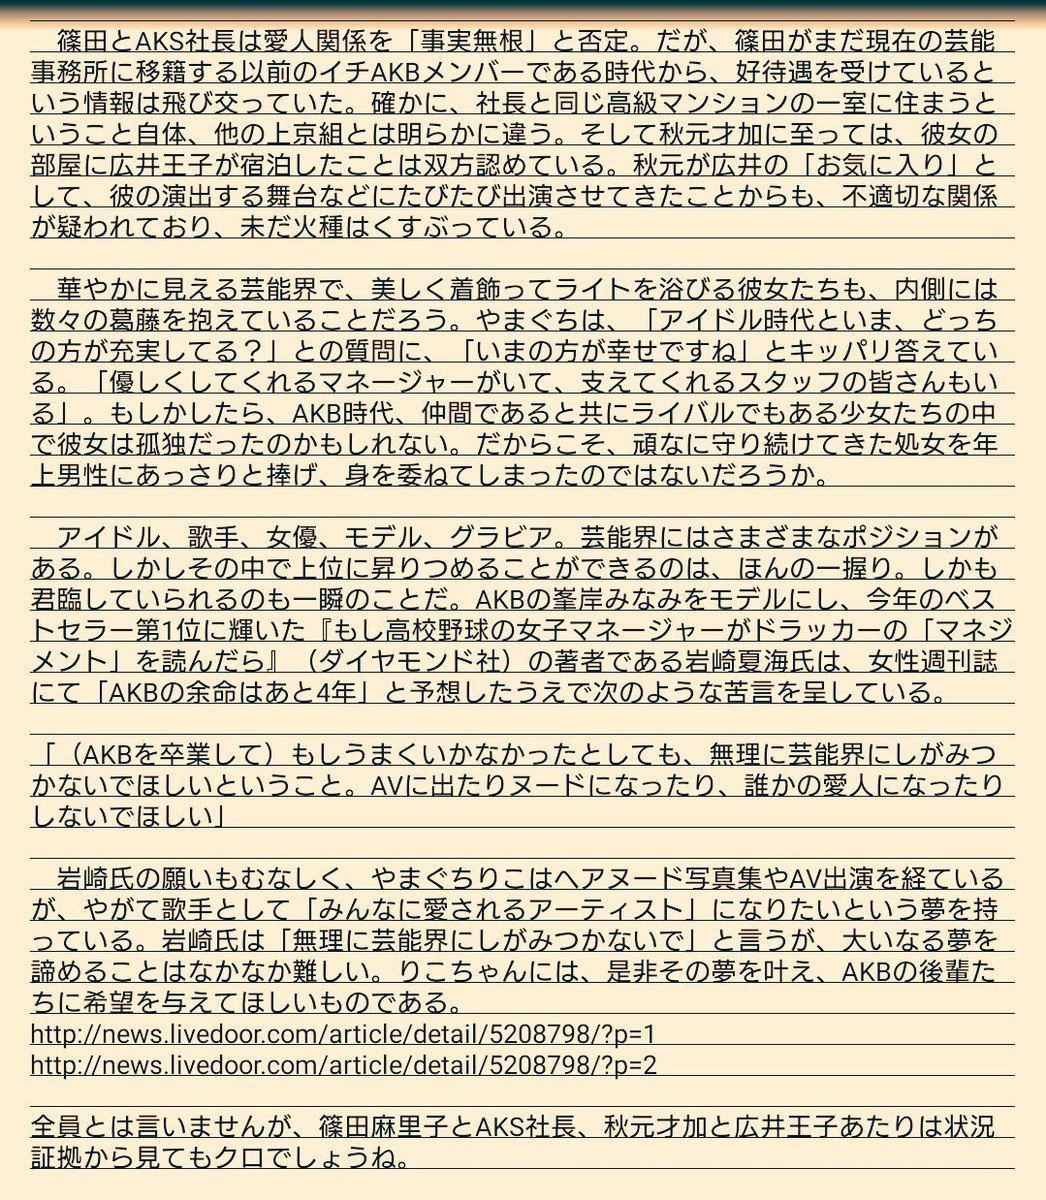 篠田とAKS社長は愛人関係を「事実無根」と否定。だが、篠田がまだ現在の芸能
事務所に移籍する以前のイチAKBメンバーである時代から、好待遇を受けていると
いう情報は飛び交っていた。確かに、社長と同じ高級マンションの一室に住まうと
いうこと自体、他の上京組とは明らかに違う。そして秋元才加に至っては、彼女の
部屋に広井王子が宿泊したことは双方認めている。秋元が広井の「お気に入り」と
して、彼の演出する舞台などにたびたび出演させてきたことからも、不適切な関係
が疑われており、未だ火種はくすぶっている。

　華やかに見える芸能界で、美しく着飾ってライトを浴びる彼女たちも、内側には
数々の葛藤を抱えていることだろう。やまぐちは、「アイドル時代といま、どっち
の方が充実してる？」との質問に、「いまの方が幸せですね」とキッパリ答えてい
る。「優しくしてくれるマネージャーがいて、支えてくれるスタッフの皆さんもい
る」。もしかしたら、AKB時代、仲間であると共にライバルでもある少女たちの中
で彼女は孤独だったのかもしれない。だからこそ、頑なに守り続けてきた処女を年
上男性にあっさりと捧げ、身を委ねてしまったのではないだろうか。

　アイドル、歌手、女優、モデル、グラビア。芸能界にはさまざまなポジションが
ある。しかしその中で上位に昇りつめることができるのは、ほんの一握り。しかも
君臨していられるのも一瞬のことだ。AKBの峯岸みなみをモデルにし、今年のベス
トセラー第1位に輝いた『もし高校野球の女子マネージャーがドラッカーの「マネジ
メント」を読んだら』（ダイヤモンド社）の著者である岩崎夏海氏は、女性週刊誌
にて「AKBの余命はあと4年」と予想したうえで次のような苦言を呈している。

「（AKBを卒業して）もしうまくいかなかったとしても、無理に芸能界にしがみつ
かないでほしいということ。AVに出たりヌードになったり、誰かの愛人になったり
しないでほしい」

　岩崎氏の願いもむなしく、やまぐちりこはヘアヌード写真集やAV出演を経ている
が、やがて歌手として「みんなに愛されるアーティスト」になりたいという夢を持
っている。岩崎氏は「無理に芸能界にしがみつかないで」と言うが、大いなる夢を
諦めることはなかなか難しい。りこちゃんには、是非その夢を叶え、AKBの後輩た
ちに希望を与えてほしいものである。
http://news.livedoor.com/article/detail/5208798/?p=1
http://news.livedoor.com/article/detail/5208798/?p=2

全員とは言いませんが、篠田麻里子とAKS社長、秋元才加と広井王子あたりは状況
証拠から見てもクロでしょうね。